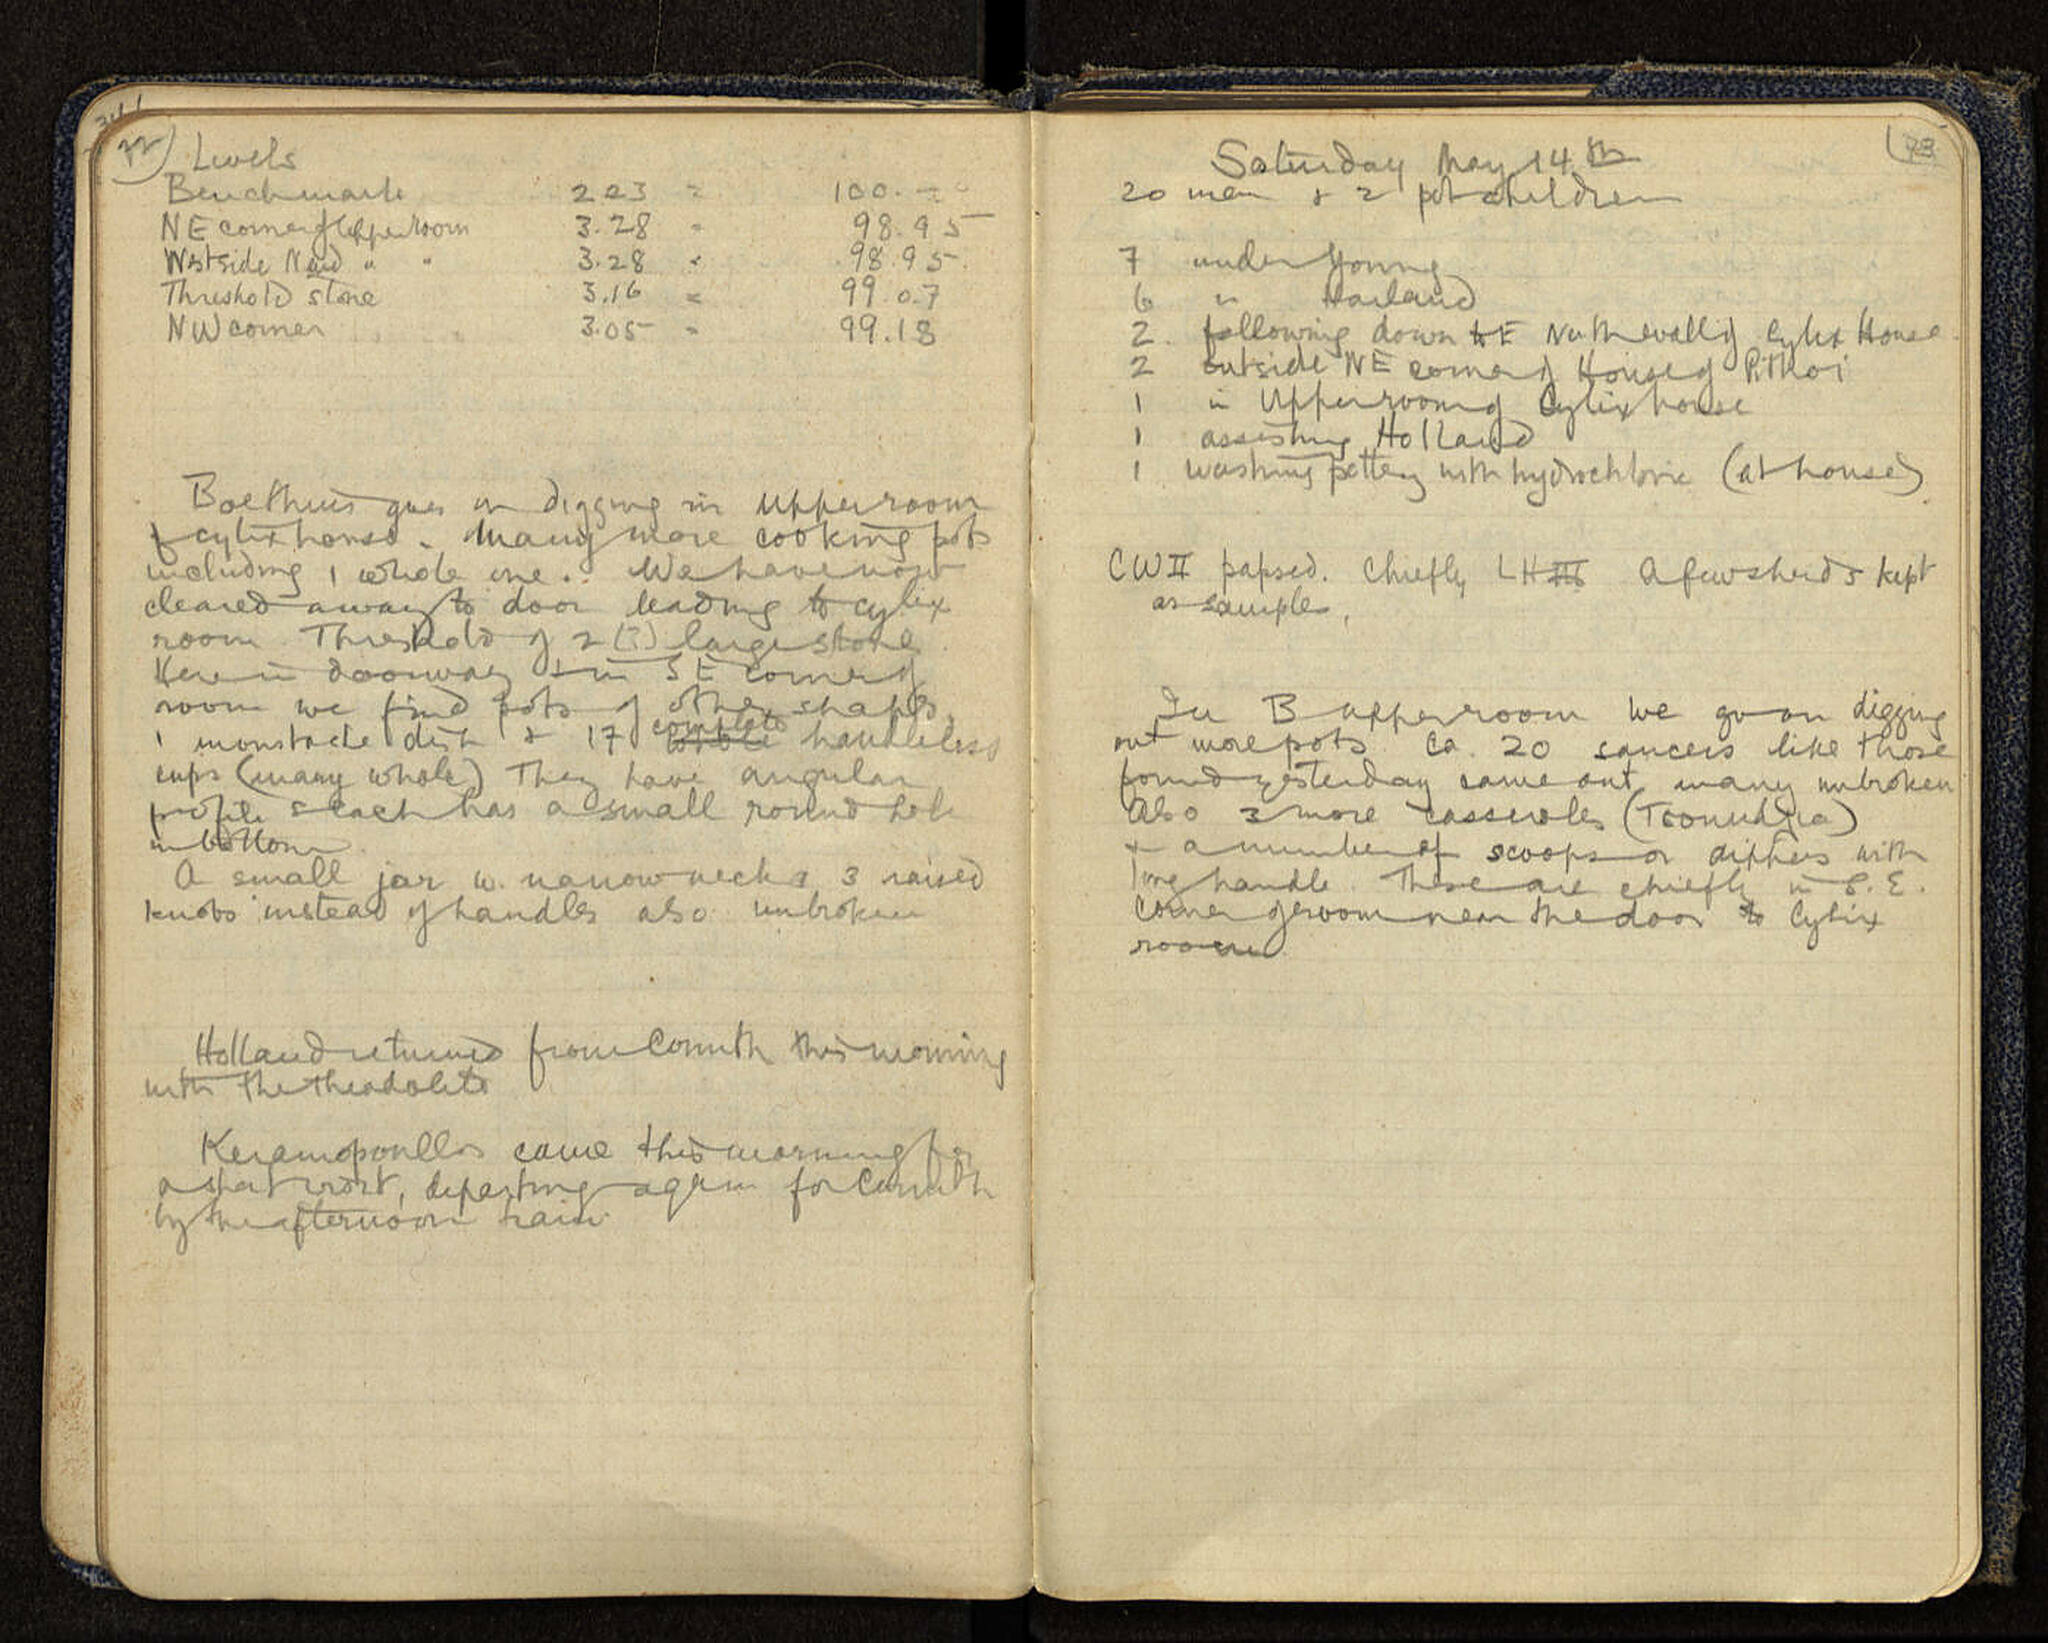 72
Levels
Benchmark 2.23 = 100.—
NE corner of Upper room 3.28 = 98.95
West side N end " " 3.28 = 98.95
Threshold stone 3.16 = 99.07
NW corner 3.05 = 99.18
Boethius goes on digging in upper room
of cylix house. Many more cooking pots
including 1 whole one. We have now
cleared away to door leading to cylix
room Threshold of 2 (?) large stones
Here in doorway & in SE corner of
room we find pots of other shapes,
1 monstache dish & 17 complete handleless
cups (many whole) They have angular
profile & each has a small round hole
in bottom
A small jar w. narrow neck & 3 raised
knobs instead of handles also unbroken
Holland returned from Corinth this morning
with the theodolite
Keramopoullos came this morning for
a short visit, departing again for Corinth
by the afternoon train
73
Saturday May 14th
20 men & 2 pot children
7 under Young
6 " Harland
2 following down to E North wall of Cylix House
2 outside NE corner of House of Pithoi
1 in Upper room of Cylix house
1 assisting Holland
1 washing pottery with hydrochloric (at house)
CW II papsed. Chiefly LH III A few sherds kept
as sample.
In B upper room we go on digging
out more pots ca. 20 saucers like those
found yesterday came out, many unbroken
Also 3 more casseroles
& a number of scoops or dippers with
long handle. These are chiefly in S.E.
corner of room near the door to Cylix
room